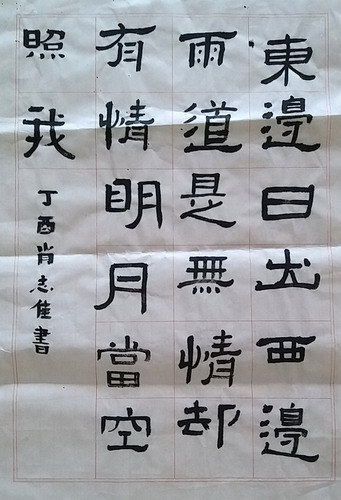 東邊日出西邊
雨道是無情却
有情明月當空
照我
丁酉肖志佳書